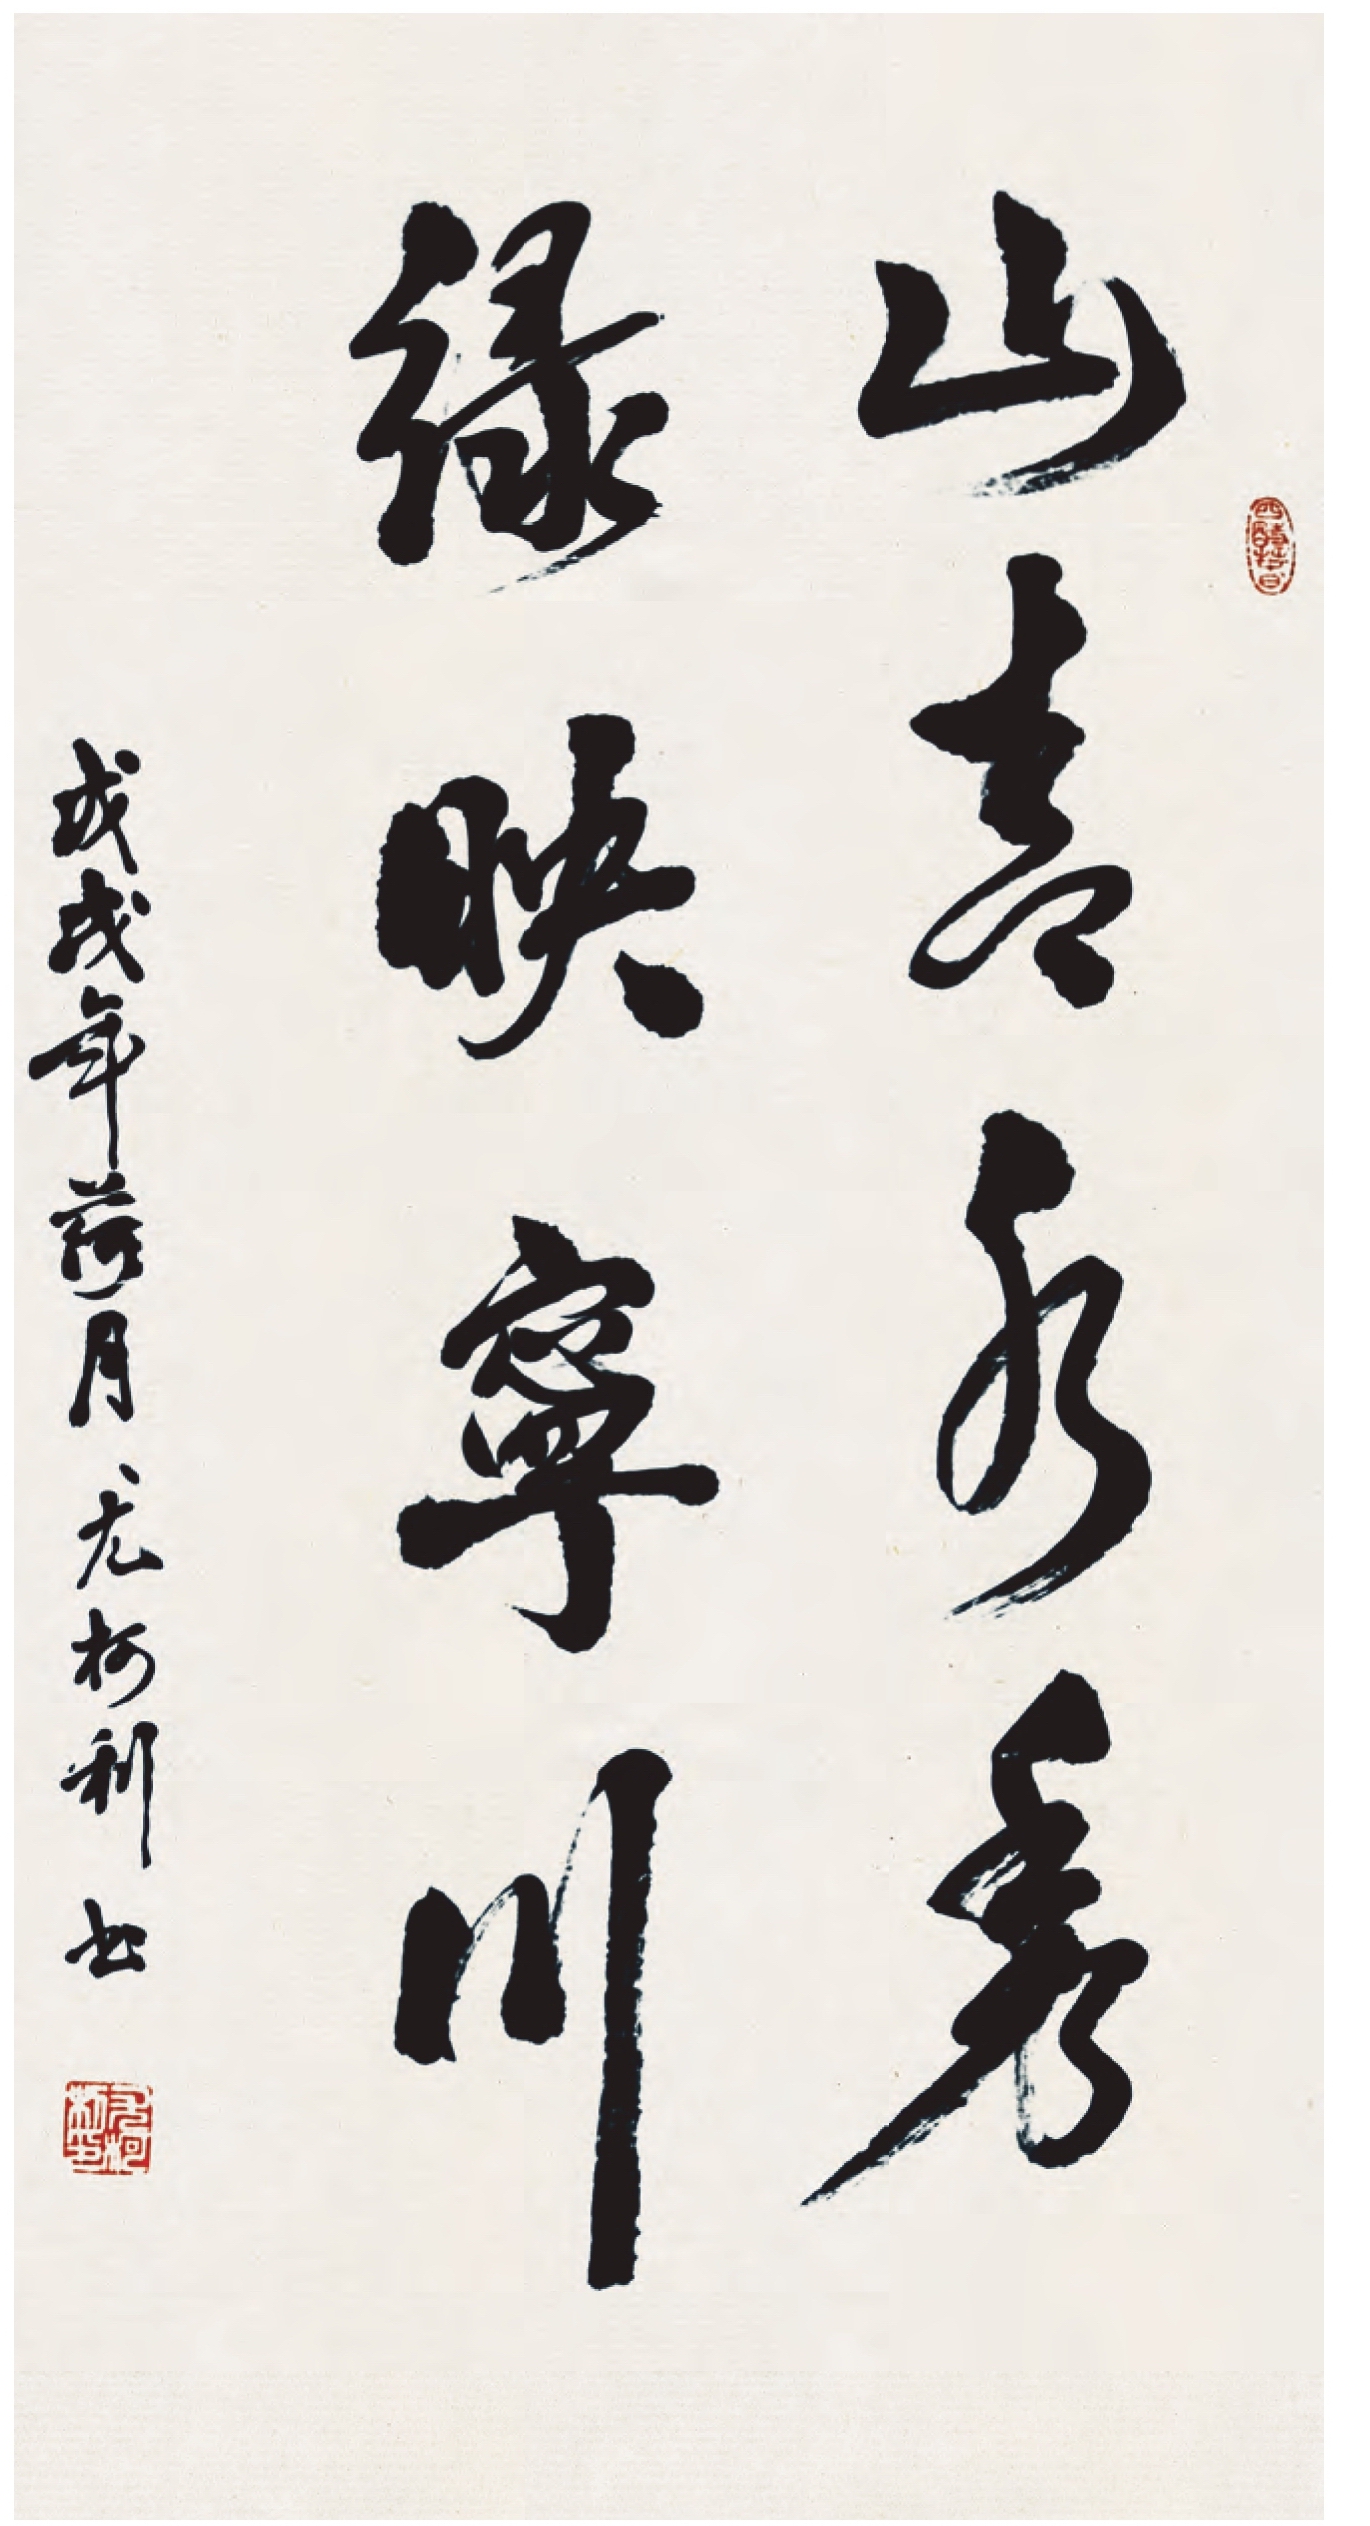 山青水秀
绿映寧川
戊戌年荷月尤柯利书